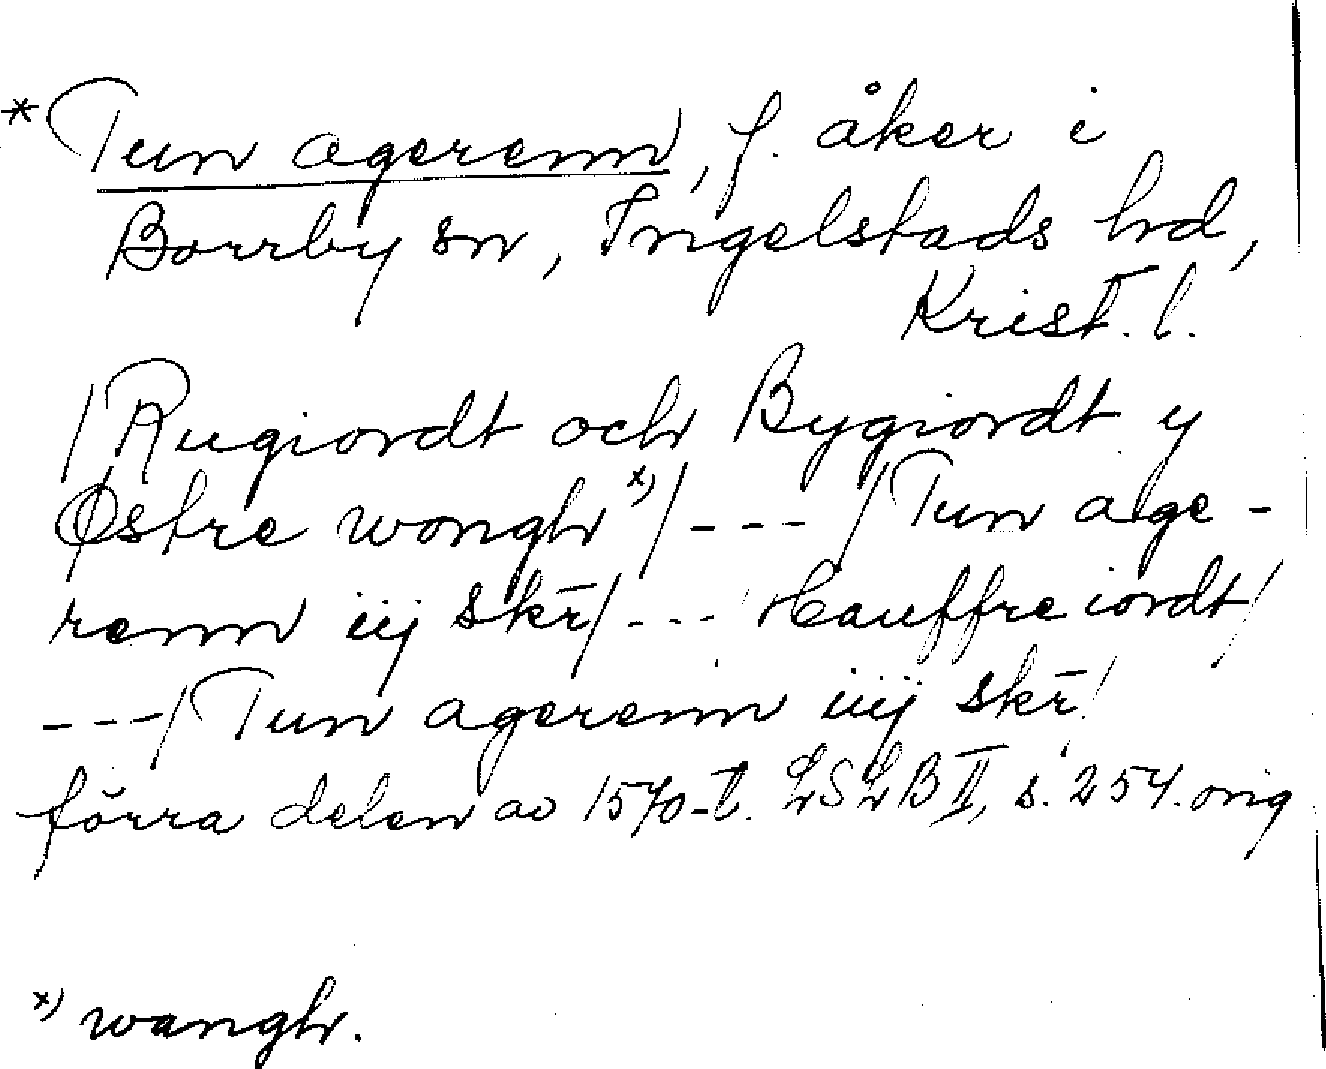 * Tun agerenn, f. åker i
Borrby sn, Ingelstads hd,
Krist. l.
/Rugiordt och Bygiordt y
Østre wongh x)/ --- /Tun age-
renn iij skr̄/ --- /Hauffre iordt/
---/Tun agerenn iiij skr̄/
förra delen av 1570-t. LSLB II, s. 254. orig
x) wangh.